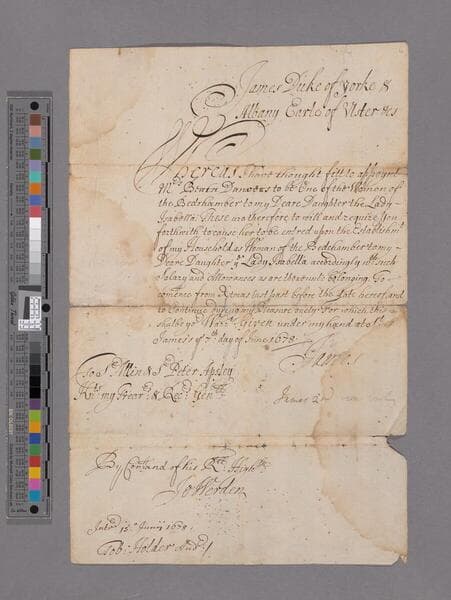 James Duke of Yorke &
Albany Earle of Ulster &c
Whereas I have thought fitt to appoynt
Mrs Danvers to be One of the Women of
the Bedchamber to my Deare Daughter the Lady
Isabella. These are therefore to will and require you
forthwith to cause her to be entred upon the Establishmt
of my Household as Woman of the Bedchamber to my
Deare Daughter ye Lady Isabella accordingly wth such
Salary and Allowances as are thereunto belonging. To
comence from Xtmas last past before the Date hereof, and
to Continue dureing my Pleasure onely. For which this
shalbe yor Warrt. Given under my hand at St
James's ye 7th day of June 1678
James
To Sr Allen & Sr Peter Apsley
Knts my Trearr & Recr Genll
By Comand of his Rll Highss
Jo Werden
Intrd 15o Junij 1678
Tob: Holder Audr